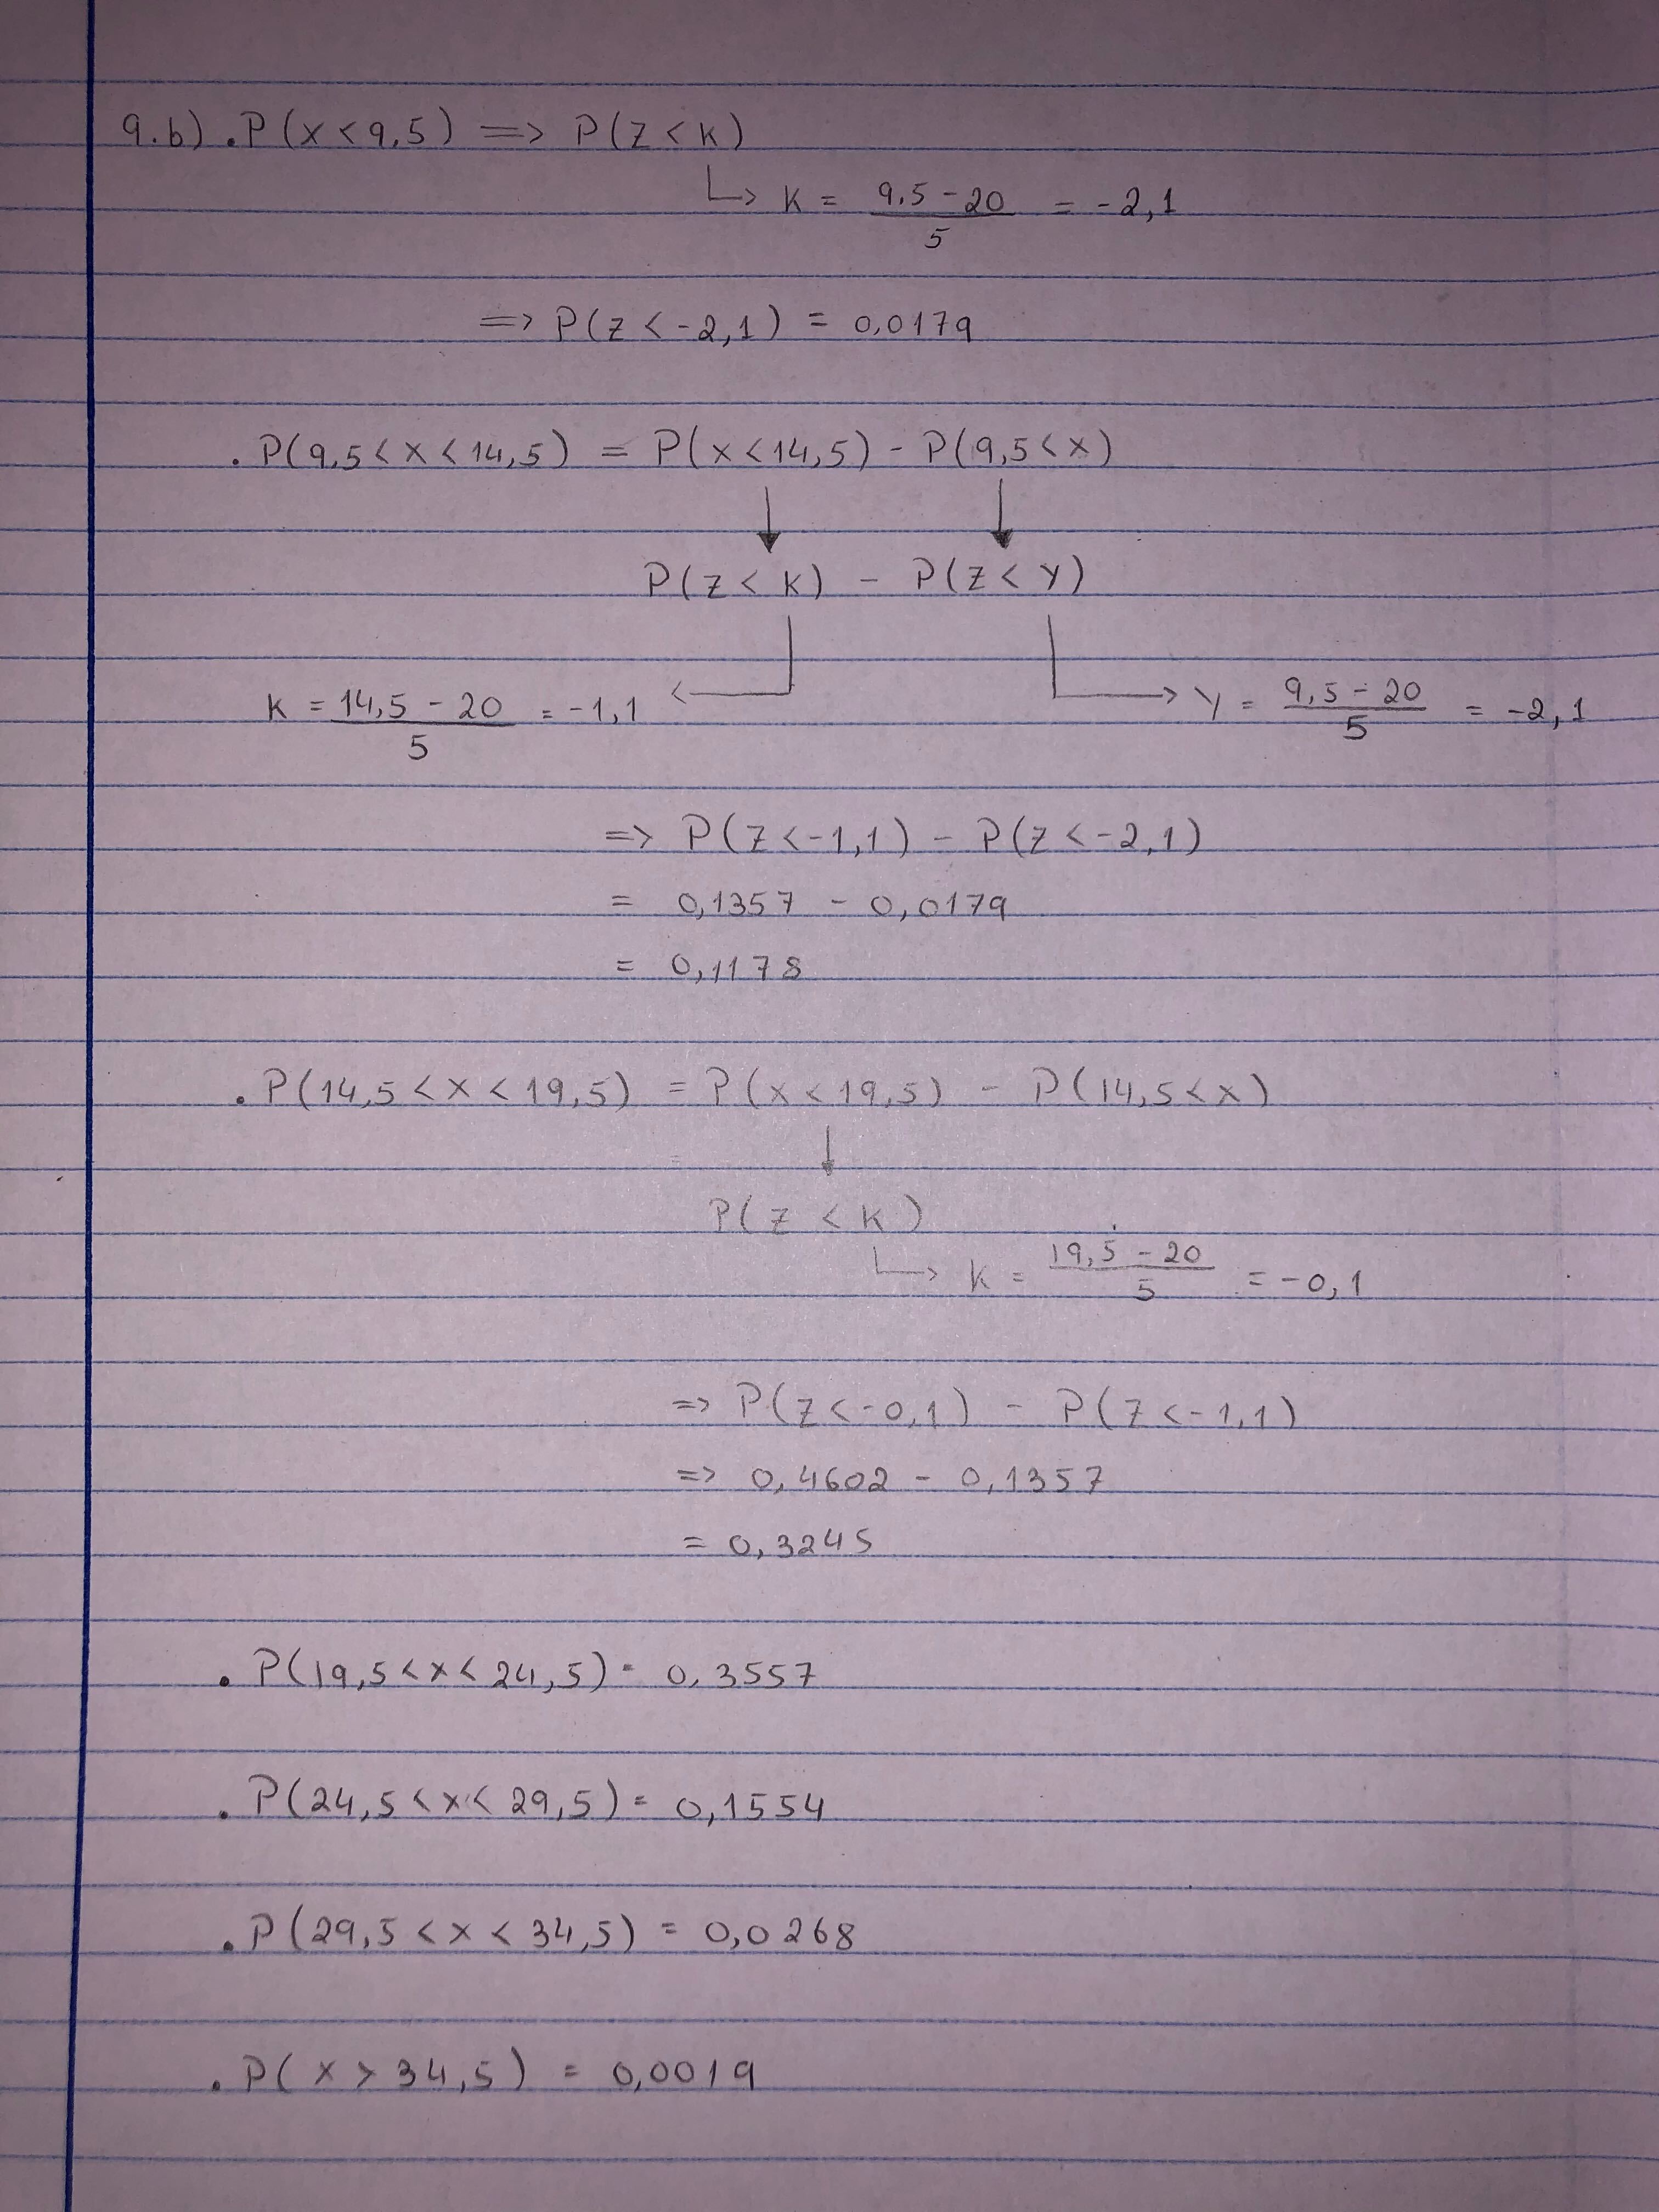 9.b) . P(x < 9,5) => P(Z < K)
↳ K = 9,5 - 20 / 5 = -2,1
=> P(Z < -2,1) = 0,0179
. P(9,5 < x < 14,5) = P(x < 14,5) - P(9,5 < x)
P(Z < K) - P(Z < Y)
K = 14,5 - 20 / 5 = -1,1
Y = 9,5 - 20 / 5 = -2,1
=> P(Z < -1,1) - P(Z < -2,1)
= 0,1357 - 0,0179
= 0,1178
. P(14,5 < x < 19,5) = P(x < 19,5) - P(14,5 < x)
P(Z < K)
↳ K = 19,5 - 20 / 5 = -0,1
=> P(Z < -0,1) - P(Z < -1,1)
=> 0,4602 - 0,1357
= 0,3245
. P(19,5 < x < 24,5) = 0,3557
. P(24,5 < x < 29,5) = 0,1554
. P(29,5 < x < 34,5) = 0,0268
. P(x > 34,5) = 0,0019